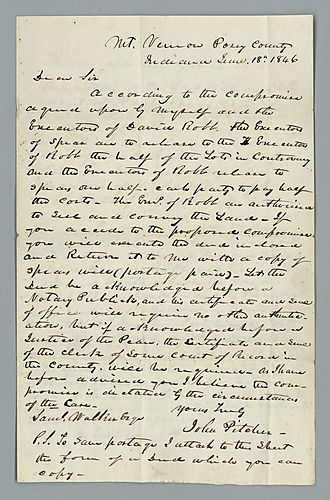 Mt. Vernon Posey County
Indiana June. 18th 1846
Dear Sir
According to the compromise
agreed upon by myself and the
Executors of David Robb. The Executors
of Spear are to release to the Executors
of Robb the half of the Lots in Controversy
and the Executors of Robb release to
Spears one half - each party to pay half
the costs - The Exrs. of Robb are authorised
to sell and convey the Land - If
you accede to the proposed compromise
you will execute the deed inclosed
and Return it to me with a copy of
Spears will (postage paid) - Let the
Deed be acknowledged before a
Notary Publick, and his certificate and Seal
of office will require no other authentic-
ation, but if acknowledged before a
Justice of the Peace, the Certificate and Seal
of the clerk of some court of Record in
the County, will be required - As I have
before advised you I believe the com-
promise is dictated by the circumstances
of the case -
Yours Truly
Saml. Walker Esqr
John Pitcher -
P.S. To save postage I attach to this Sheet
the form of a deed which you can
copy -